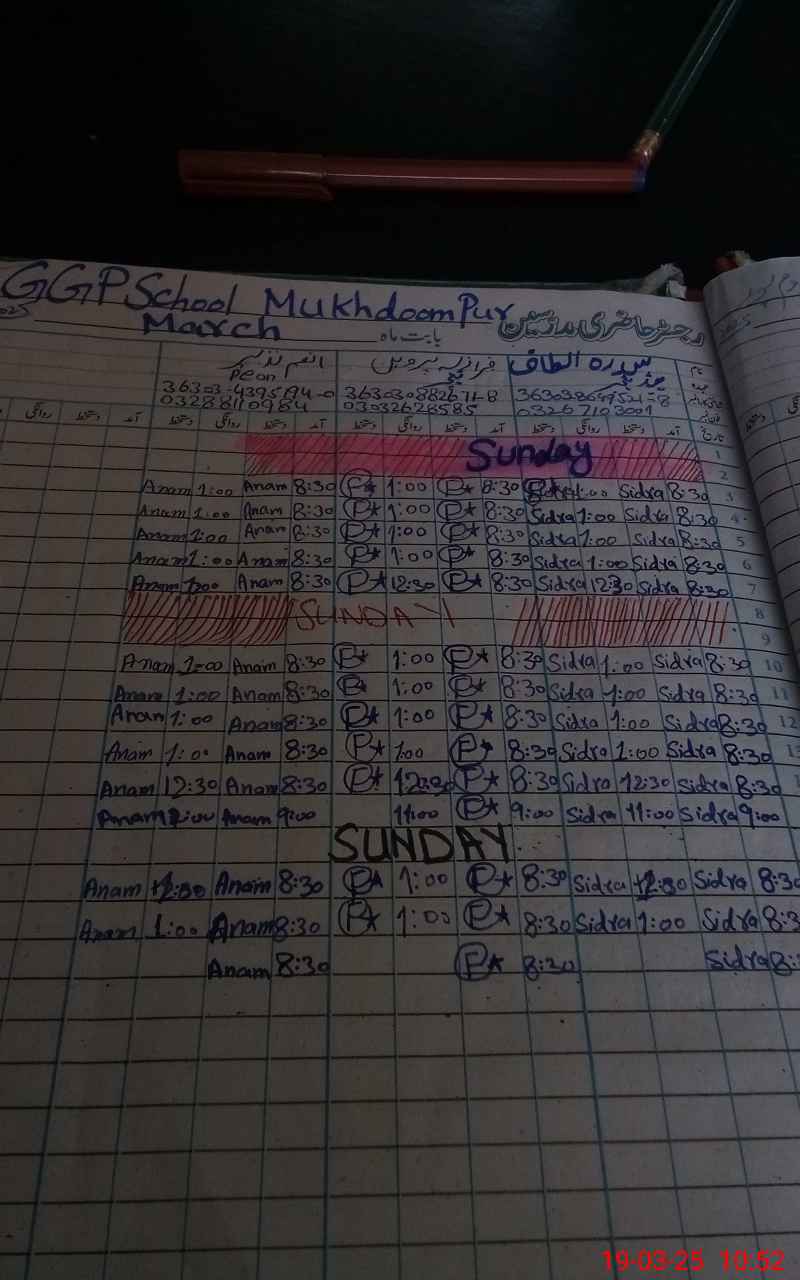 GGPSchool MukhdoomPur رجسٹر حاضری مدرسین
March بابت ماہ
انعم نذیر فرزانہ پروین سدرہ الطاف نام
Peon
03288110984 03032628585 03267103001
روانگی دستخط آمد دستخط روانگی دستخط آمد دستخط روانگی دستخط آمد دستخط روانگی دستخط آمد تاریخ
Sunday 1
2
Anam 1:00 Anam 8:30 P* 1:00 P* 8:30 1:00 Sidra 8:30 3
Anam 1:00 Anam 8:30 P* 1:00 P* 8:30 Sidra 1:00 Sidra 8:30 4
Anam 1:00 Anam 8:30 P* 1:00 P* 8:30 Sidra 1:00 Sidra 8:30 5
Anam 1:00 Anam 8:30 P* 1:00 P* 8:30 Sidra 1:00 Sidra 8:30 6
Anam 1:00 Anam 8:30 P* 12:30 P* 8:30 Sidra 12:30 Sidra 8:30 7
SUNDAY 8
9
Anam 1:00 Anam 8:30 P* 1:00 P* 8:30 Sidra 1:00 Sidra 8:30 10
Anam 1:00 Anam 8:30 P* 1:00 P* 8:30 Sidra 1:00 Sidra 8:30 11
Anam 1:00 Anam 8:30 P* 1:00 P* 8:30 Sidra 1:00 Sidra 8:30 12
Anam 1:00 Anam 8:30 P* 1:00 P* 8:30 Sidra 1:00 Sidra 8:30
Anam 12:30 Anam 8:30 P* 12:30 P* 8:30 Sidra 12:30 Sidra 8:30
Anam Anam 9:00 11:00 P* 9:00 Sidra 11:00 Sidra 9:00
SUNDAY
Anam Anam 8:30 P* 1:00 P* 8:30 Sidra Sidra 8:30
Anam 1:00 Anam 8:30 P* 1:00 P* 8:30 Sidra 1:00 Sidra 8:3
Anam 8:30 P* 8:30 Sidra 8:
19-03-25 10:52